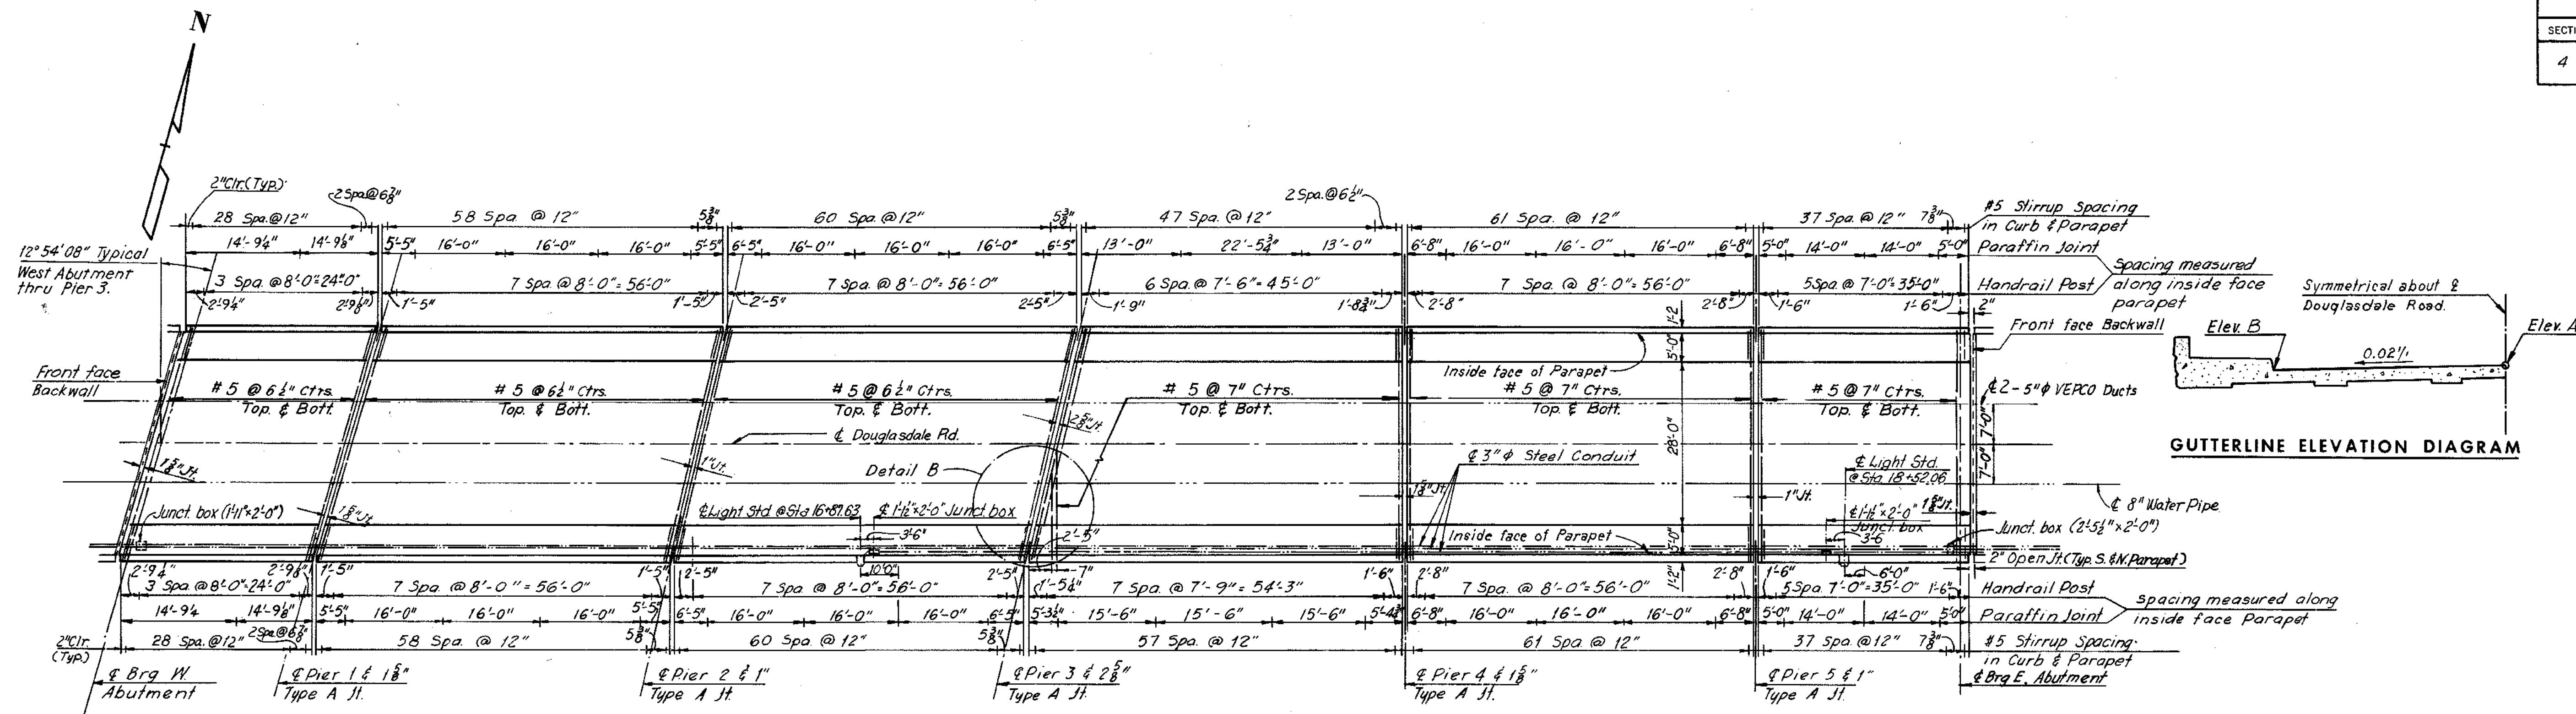 N
SECTI
4
2"Clr.(Typ.)
2 Spa.@6⅞"
2 Spa.@6½"
28 Spa.@12"
58 Spa. @ 12"
5⅜"
60 Spa.@12"
5⅜"
47 Spa.@ 12"
61 Spa. @ 12"
37 Spa.@ 12"
7⅜"
#5 Stirrup Spacing
in Curb & Parapet
12°54'08" Typical
West Abutment
thru Pier 3.
14'-9¼"
14'-9⅛"
5'-5"
16'-0"
16'-0"
16'-0"
5'-5"
6'-5"
16'-0"
16'-0"
16'-0"
6'-5"
13'-0"
22'-5¾"
13'-0"
6'-8"
16'-0"
16'-0"
16'-0"
6'-8"
5'-0"
14'-0"
14'-0"
5'-0"
Paraffin Joint
3 Spa.@8'-0"=24'-0"
7 Spa.@ 8'-0"= 56'-0"
7 Spa.@ 8'-0"= 56'-0"
6 Spa.@ 7'-6"= 45'-0"
7 Spa.@ 8'-0"= 56'-0"
5Spa.@ 7'-0"=35'-0"
Handrail Post
Spacing measured
along inside face
parapet
2'-9¼"
2'-9⅛"
1'-5"
1'-5"
2'-5"
2'-5"
1'-9"
1'-8¾"
2'-8"
2'-8"
1'-6"
1'-6"
2"
1'-2
5'-0"
Front face Backwall
Symmetrical about ℄
Douglasdale Road.
Elev. B
Elev. A
0.02'/'
GUTTERLINE ELEVATION DIAGRAM
Front face
Backwall
Inside face of Parapet
# 5 @ 6½" Ctrs.
Top. & Bott.
# 5 @ 6½" Ctrs.
Top. & Bott.
# 5 @ 6½" Ctrs.
Top. & Bott.
# 5 @ 7" Ctrs.
Top. & Bott.
# 5 @ 7" Ctrs.
Top. & Bott.
# 5 @ 7" Ctrs.
Top. & Bott.
℄ 2 - 5"φ VEPCO Ducts
7'-0"
7'-0"
28'-0"
2⅝" Jt.
℄ Douglasdale Rd.
Detail B
1⅝" Jt.
1" Jt.
℄ 3" φ Steel Conduit
℄ Light Std.
@ Sta. 18+52.06
1⅝" Jt.
1" Jt.
℄ 8" Water Pipe
Junct. box (1'-11"×2'-0")
1⅝" Jt.
℄Light Std. @Sta 16+87.63
℄ 1'-1½"×2'-0" Junct box
3'-6"
℄1'-1½"×2'-0"
Junct box
3'-6
1⅝" Jt.
Junct. box (2'-5½"×2'-0")
Inside face of Parapet
2'-5"
5'-0"
2" Open Jt.(Typ. S.&N. Parapet)
2'-9¼"
2'-9⅛"
1'-5"
1'-5"
2'-5"
10'-0"
2'-5"
7"
1'-5¼"
1'-6"
2'-8"
1'-2"
2'-8"
1'-6"
6'-0"
1'-6"
3 Spa.@8'-0"=24'-0"
7 Spa. @ 8'-0"= 56'-0"
7 Spa. @ 8'-0"= 56'-0"
7 Spa. @ 7'-9"= 54'-3"
7 Spa. @ 8'-0"= 56'-0"
5Spa. 7'-0"=35'-0"
Handrail Post
14'-9¼
14'-9⅛"
5'-5"
16'-0"
16'-0"
16'-0"
5'-5"
6'-5"
16'-0"
16'-0"
16'-0"
6'-5"
5'-3½"
15'-6"
15'-6"
15'-6"
5'-4¾"
6'-8"
16'-0"
16'-0"
16'-0"
6'-8"
5'-0"
14'-0"
14'-0"
5'-0"
Paraffin Joint
spacing measured along
inside face Parapet
2"Clr.
(Typ.)
28 Spa.@12"
2Spa@6⅞"
58 Spa. @ 12"
5⅜"
60 Spa. @ 12"
5⅜"
57 Spa. @ 12"
61 Spa @ 12"
37 Spa.@12"
7⅜"
#5 Stirrup Spacing
in Curb & Parapet
℄ Brg W.
Abutment
℄ Pier 1 & 1⅝"
Type A Jt.
℄ Pier 2 & 1"
Type A Jt.
℄ Pier 3 & 2⅝"
Type A Jt.
℄ Pier 4 & 1⅝"
Type A Jt.
℄ Pier 5 & 1"
Type A Jt.
℄ Brg E. Abutment